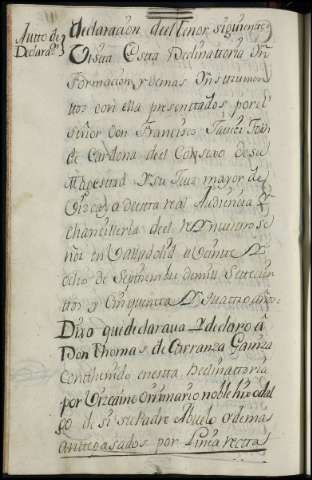 Autto de
Declaraon
declaracion deel tenor siguiente
Vista Estta Declinattoria Yn
formacion, y demas Ynstrumen
ttos con ella presenttados por el
señor Don Francisco Javier
de Cardona deel Consexo de su
Magestad Y su Juez mayor de
Vizcaya de esta real Audiencia y
Chancilleria deel
Valladolid a Veintte y
ocho de Septtiembre de mill Settecien
ttos y Cinquentta y quattro años
Dixo que declarava y declaro a
Don Thomas de Carranza Gainza
Conttenido en estta Declinattoria
por Vizcaino originario noble hixo dal
go de si su Padre Abuelo y demas
antte pasados por linea rectta